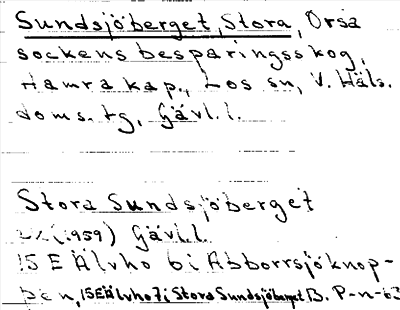 Sundsjöberget, Stora, Orsa
sockens besparingsskog,
Hamra kap., Los sn, V. Häls.
doms. tg, Gävl. l.
Stora Sundsjöberget
(1959) Gävl.l.
15 E Älvho 6 i Abborrsjöknop-
pen, 15E Älvho 7i Stora Sundsjöberget B. P-n-63